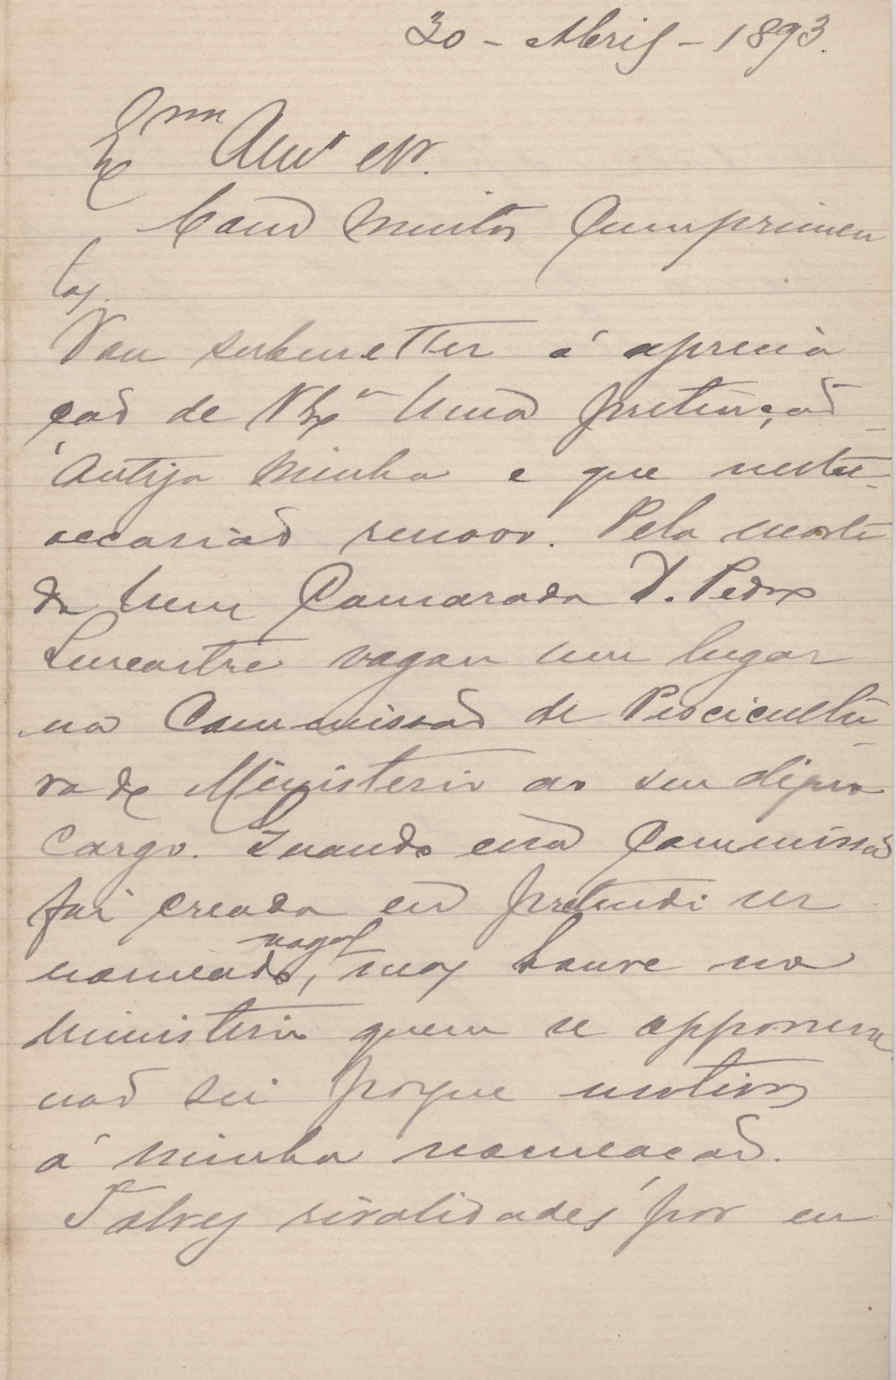 30 - Abril - 1893.
Exmo Amo e Sr.
Com muitos Cumprimen
tos.
Vou submetter á aprecia
ção de VExa uma pretenção
antiga minha e que nesta
occasião renovo. Pela morte
do meu Camarada D. Pedro
Lencastre vagou um lugar
na Commissão de Piscicultu
ra do Ministerio ao seu digno
Cargo. Quando essa Commissão
foi creada eu pretendi ser
nomeado, vogal mas houve no
ministerio quem se oppozesse
não sei porque motivos
á minha nomeação.
Talvez rivalidades por eu